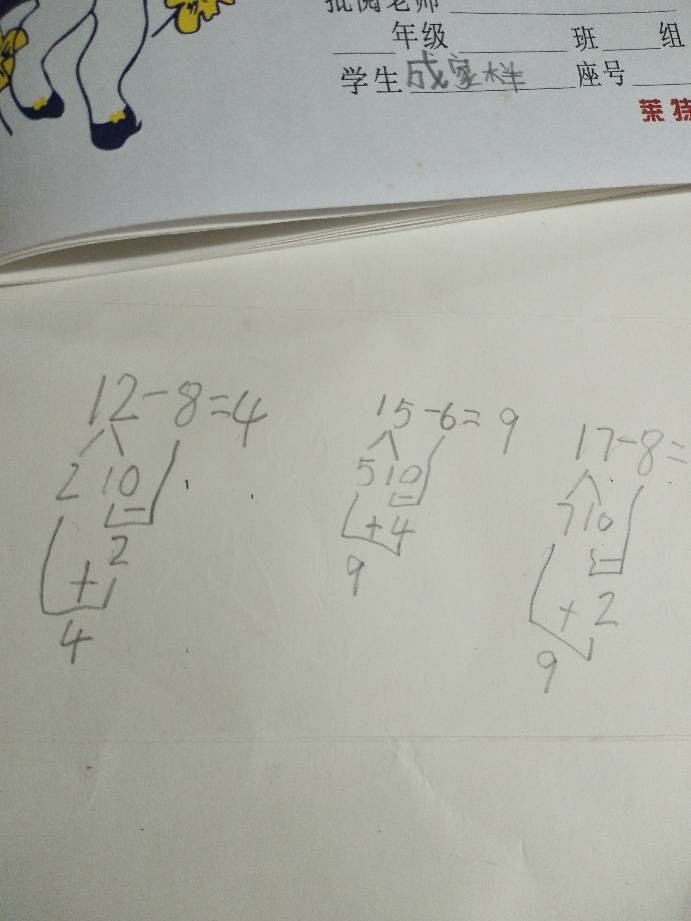 批阅老师
年级 班 组
学生 成家样 座号
莱特
12-8=4
2 10
2
+
4
15-6=9
5 10
+4
9
17-8=
7 10
+2
9